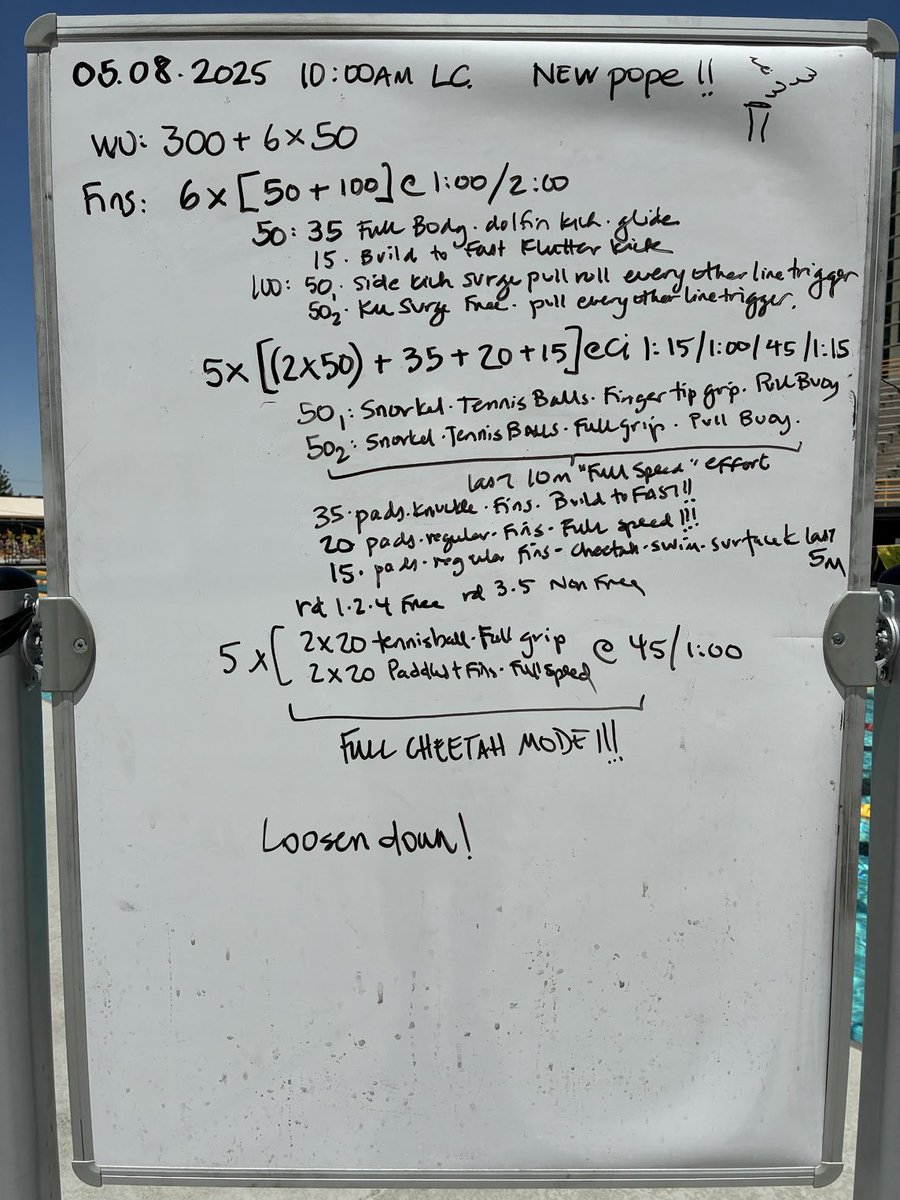 05.08.2025 10:00AM LC. NEW pope !!
WU: 300 + 6 x 50
Fins: 6 x [50 + 100] @ 1:00/2:00
50: 35 Full Body. dolfin kick. glide
15. Build to Fast Flutter kick
100: 50₁. Side kick surge pull roll every other line trigger
50₂. Surge Free. pull every other line trigger.
5x [(2x50) + 35 + 20 + 15] @ Ci 1:15/1:00/45/1:15
50₁: Snorkel. Tennis Balls. Finger tip grip. Pull Buoy
50₂: Snorkel. Tennis Balls. Full grip. Pull Buoy.
last 10m "Full Speed" effort
35. pads. knuckle. Fins. Build to FAST!!
20 pads. regular. Fins. Full speed!!!
15. pads. regular Fins - cheetah. swim. surface k last
5m
rd 1.2.4 Free rd 3.5 Non Free
5 x [ 2x20 tennisball. Full grip @ 45/1:00
2x20 Paddles + Fins. Full Speed
FULL CHEETAH MODE!!!
Loosen down!